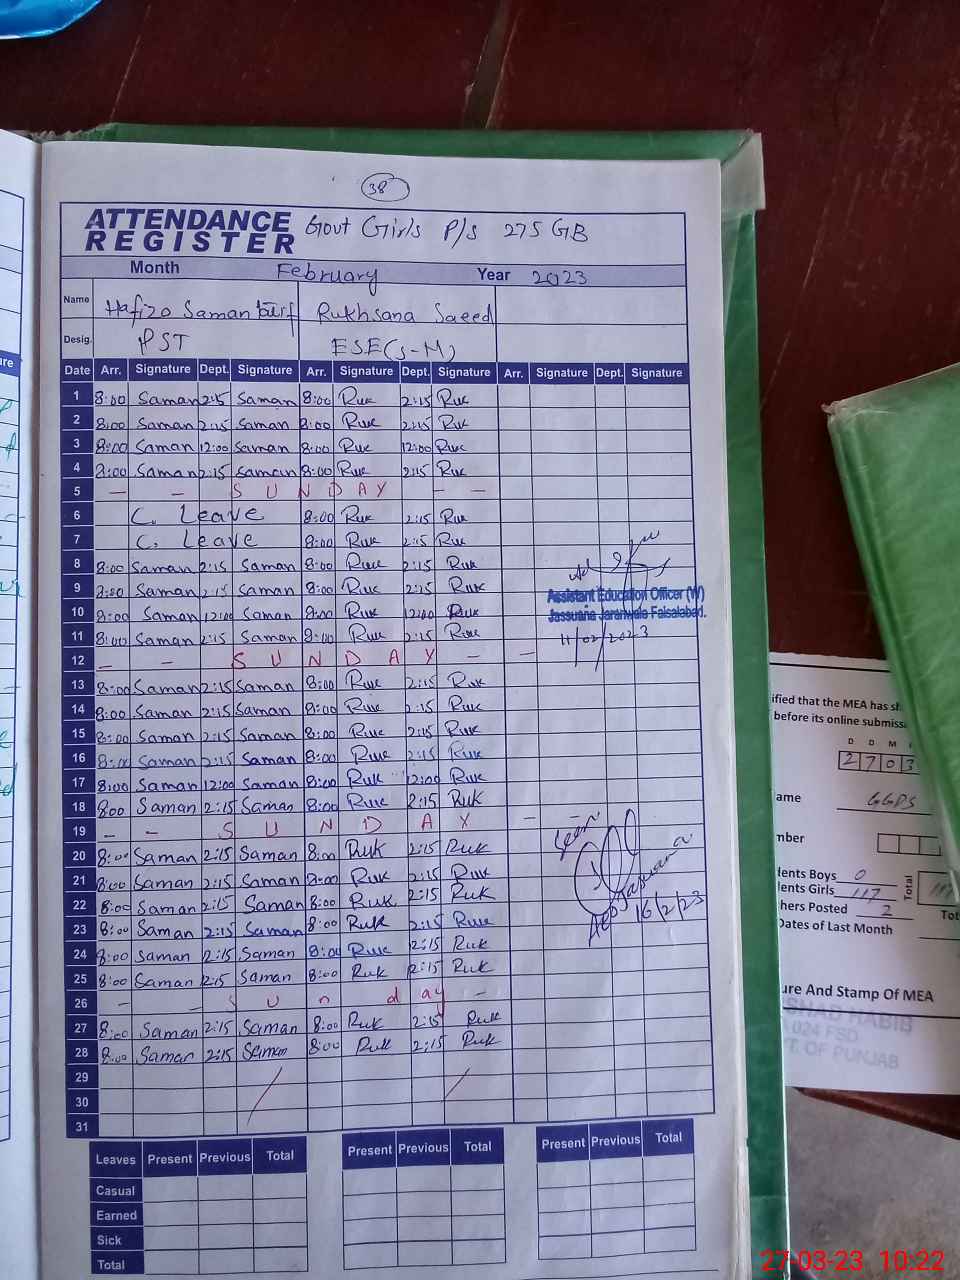 38
ATTENDANCE REGISTER Govt Girls P/s 275 GB
Month February Year 2023
Name Hafiza Saman Rukhsana Saeed
Desig. PST ESE(S-M)
Date Arr. Signature Dept. Signature Arr. Signature Dept. Signature Arr. Signature Dept. Signature
1 8:00 Saman 2:15 Saman 8:00 Ruk 2:15 Ruk
2 8:00 Saman 2:15 Saman 8:00 Ruk 2:15 Ruk
3 8:00 Saman 12:00 Saman 8:00 Ruk 12:00 Ruk
4 8:00 Saman 2:15 Saman 8:00 Ruk 2:15 Ruk
5 - - S U N D A Y - -
6 C. Leave 8:00 Ruk 2:15 Ruk
7 C. Leave 8:00 Ruk 2:15 Ruk
8 8:00 Saman 2:15 Saman 8:00 Ruk 2:15 Ruk
9 8:00 Saman 2:15 Saman 8:00 Ruk 2:15 Ruk
Assistant Education Officer (W)
10 8:00 Saman 12:00 Saman 8:00 Ruk 12:00 Ruk
Jassuana Jaranwala Faisalabad.
11 8:00 Saman 2:15 Saman 8:00 Ruk 2:15 Ruk
11/02/2023
12 - - S U N D A Y - -
13 8:00 Saman 2:15 Saman 8:00 Ruk 2:15 Ruk
14 8:00 Saman 2:15 Saman 8:00 Ruk 2:15 Ruk
15 8:00 Saman 2:15 Saman 8:00 Ruk 2:15 Ruk
16 8:00 Saman 2:15 Saman 8:00 Ruk 2:15 Ruk
17 8:00 Saman 12:00 Saman 8:00 Ruk 12:00 Ruk
18 8:00 Saman 2:15 Saman 8:00 Ruk 2:15 Ruk
19 - - S U N D A Y - -
Seen
20 8:00 Saman 2:15 Saman 8:00 Ruk 2:15 Ruk
21 8:00 Saman 2:15 Saman 8:00 Ruk 2:15 Ruk
22 8:00 Saman 2:15 Saman 8:00 Ruk 2:15 Ruk
Jassuana
16/2/23
23 8:00 Saman 2:15 Saman 8:00 Ruk 2:15 Ruk
24 8:00 Saman 2:15 Saman 8:00 Ruk 2:15 Ruk
25 8:00 Saman 2:15 Saman 8:00 Ruk 2:15 Ruk
26 - - S u n d ay -
27 8:00 Saman 2:15 Saman 8:00 Ruk 2:15 Ruk
28 8:00 Saman 2:15 Saman 8:00 Ruk 2:15 Ruk
29
30
31
Leaves Present Previous Total Present Previous Total Present Previous Total
Casual
Earned
Sick
Total
ified that the MEA has sh
before its online submiss
D D M
2 7 0 3
ame GGPS
mber
dents Boys 0
dents Girls 117 Total 117
hers Posted 2 Tot
Dates of Last Month
ure And Stamp Of MEA
SHAD HABIB
024 FSD
T. OF PUNJAB
27-03-23 10:22